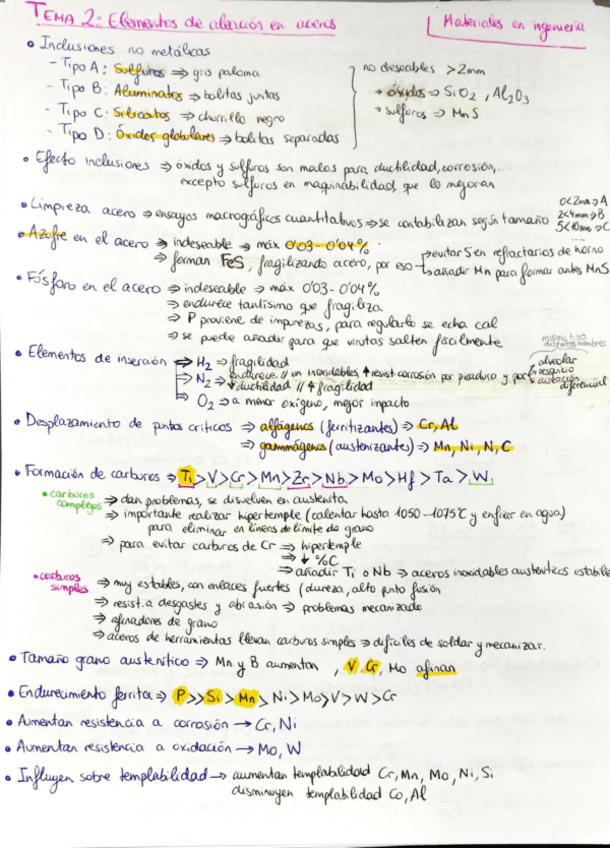 TEMA 2: Elementos de aleación en aceros
Materiales en ingeniería
• Inclusiones no metálicas
- Tipo A: Sulfuros ⇒ gris paloma
- Tipo B: Aluminatos ⇒ bolitas juntas
- Tipo C: Silicatos ⇒ churrillo negro
- Tipo D: Óxidos globulares ⇒ bolitas separadas
no deseables >2mm
→ óxidos ⇒ SiO2, Al2O3
→ sulfuros ⇒ MnS
• Efecto inclusiones ⇒ óxidos y sulfuros son malos para ductilidad, corrosión,...
excepto sulfuros en maquinabilidad que lo mejoran
• Limpieza acero ⇒ ensayos macrográficos cuantitativos ⇒ se contabilizan según tamaño
0<2mm ⇒ A
2<4mm ⇒ B
• Azufre en el acero ⇒ indeseable ⇒ máx 0'03-0'04%
⇒ forman FeS, fragilizando acero, por eso
→ evitar S en refractarios de horno
→ añadir Mn para formar antes MnS
• Fósforo en el acero ⇒ indeseable ⇒ máx 0'03-0'04%
⇒ endurece tantísimo que fragiliza
⇒ P proviene de impurezas, para regularlo se echa cal
⇒ se puede añadir para que virutas salten fácilmente
• Elementos de inserción ⇒ H2 ⇒ fragilidad
⇒ N2 ⇒ endurece // en inoxidables, ↑ resist. corrosión por picadura y por
↓ ductilidad // ↑ fragilidad
mismo tipo, distintos nombres
alveolar
resquicio
aireación diferencial
⇒ O2 ⇒ a menor oxígeno, mejor impacto
• Desplazamiento de puntos críticos ⇒ alfágenos (ferritizantes) ⇒ Cr, Al
⇒ gammágenos (austenizantes) ⇒ Mn, Ni, N, C
• Formación de carburos ⇒ Ti > V > Cr > Mn > Zr > Nb > Mo > Hf > Ta > W
• carburos complejos ⇒ dan problemas, se disuelven en austenita
⇒ importante realizar hipertemple (calentar hasta 1050-1075°C y enfriar en agua)
para eliminar en líneas de límite de grano
⇒ para evitar carburos de Cr ⇒ hipertemple
⇒ ↓ %C
⇒ añadir Ti o Nb ⇒ aceros inoxidables austeníticos estabili
• carburos simples ⇒ muy estables, con enlaces fuertes (dureza, alto punto fusión
⇒ resist. a desgastes y abrasión ⇒ problemas mecanizado
⇒ afinadores de grano
⇒ aceros de herramientas llevan carburos simples ⇒ difíciles de soldar y mecanizar.
• Tamaño grano austenítico ⇒ Mn y B aumentan, V, Cr, Mo afinan
• Endurecimiento ferrita ⇒ P >> Si > Mn > Ni > Mo > V > W > Cr
• Aumentan resistencia a corrosión → Cr, Ni
• Aumentan resistencia a oxidación → Mo, W
• Influyen sobre templabilidad → aumentan templabilidad Cr, Mn, Mo, Ni, Si
disminuyen templabilidad Co, Al